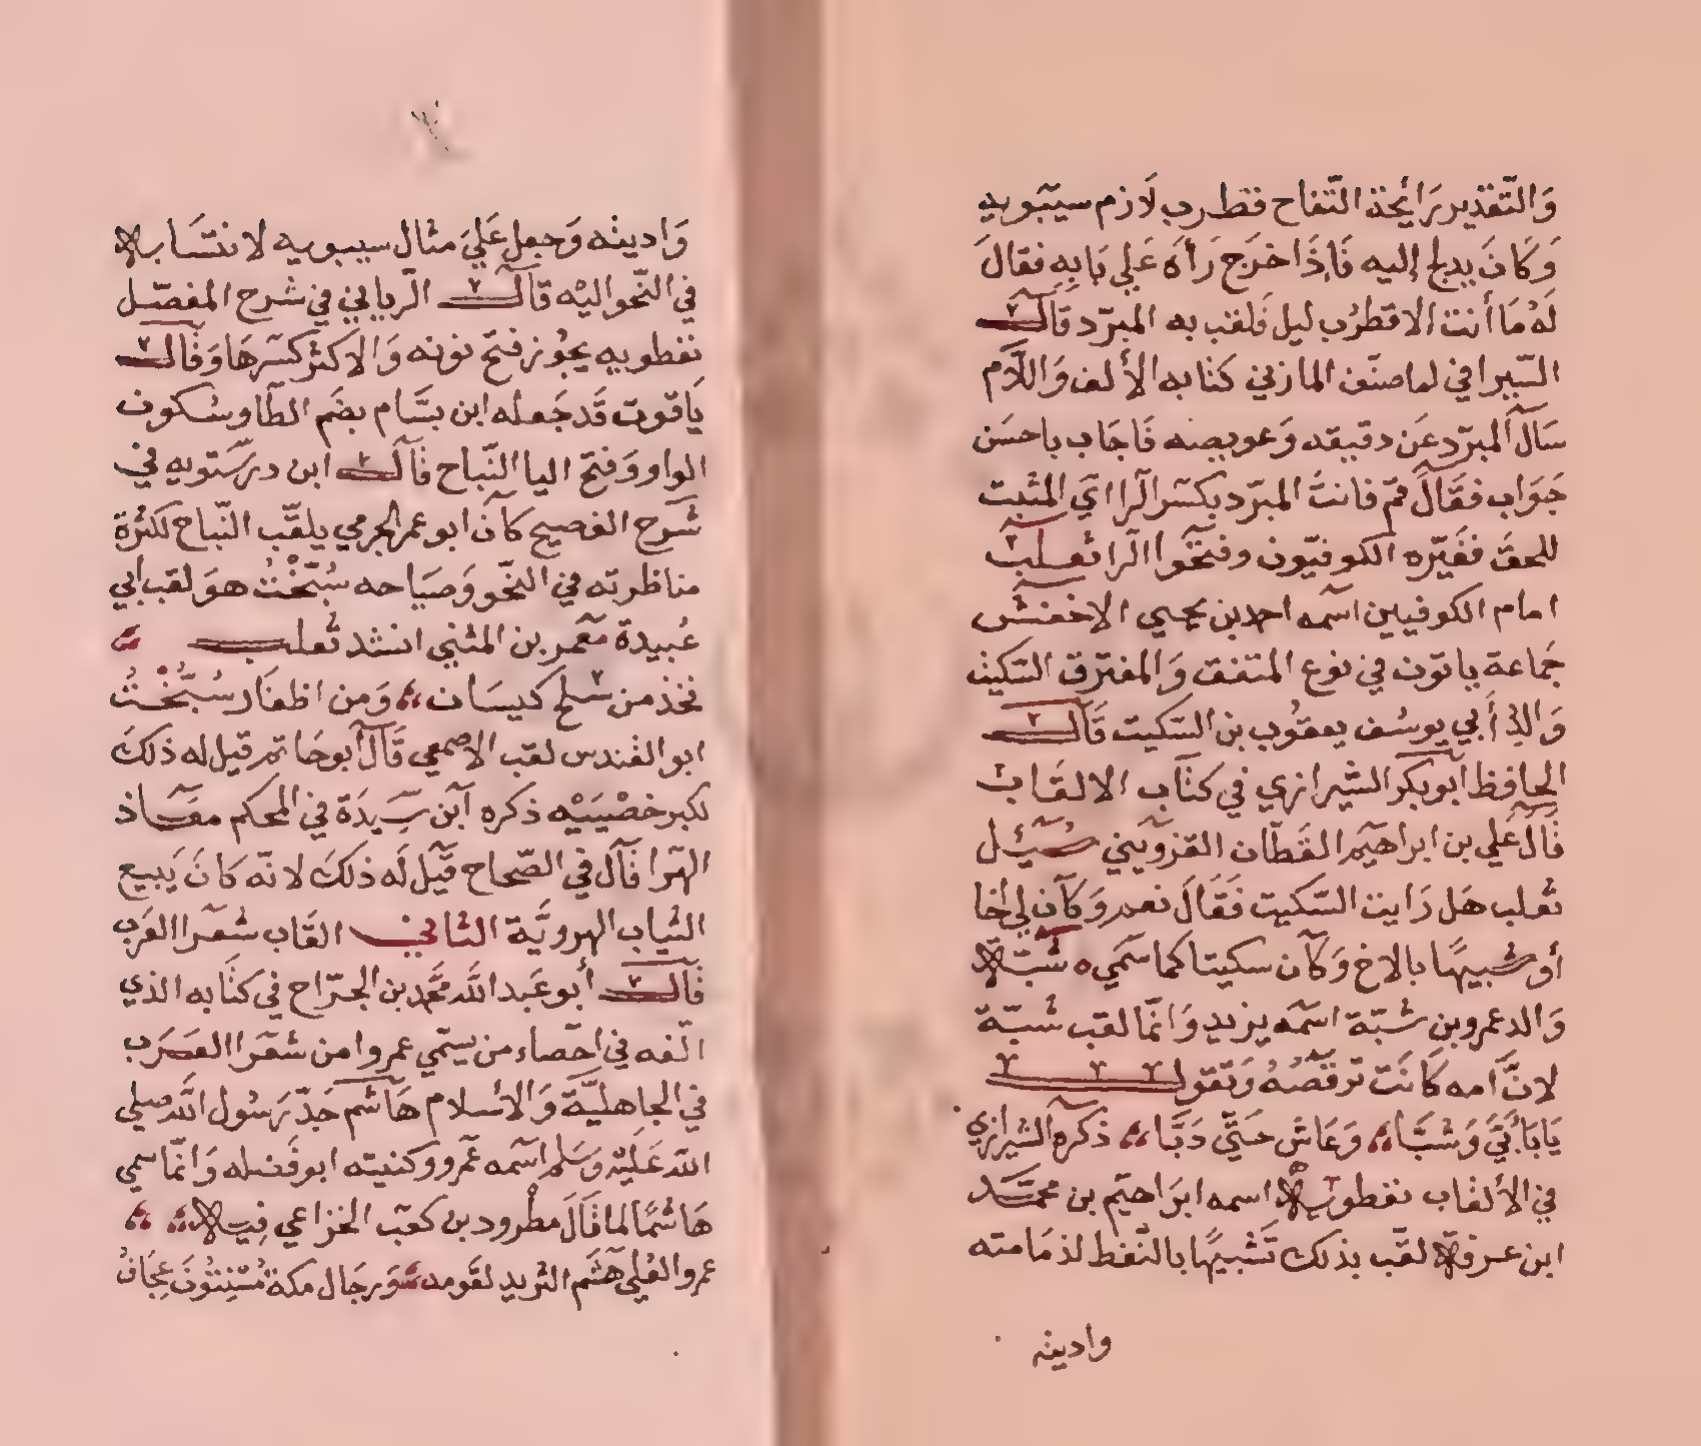 وَالتَّقدير رَائحة التّفاح قطرب لَازم سيبَويه
وَكَانَ يدلج إليه فَإذَا خرَج رَأهَ عَلي بَابِهِ فقالَ
لَهُ مَا أنت الاقطرُب ليل فَلقب به المبرّد قَالَ
السّيرافي لما صنّف المازني كتابه الألف وَاللّام
سَألَ المبرّد عَن دقيقه وَعويصه فَاجَاب باحسَن
جَوَاب فقَالَ قمّ فانتَ المبرّد بكسَر الرا ايَ المثبت
للحقَ فغَيّره الكوفيّون وفتحَوا الرّا ثعلب
امام الكوفيين اسمه احمد بن يحيي الاخفش
جَماعة ياتون في نوع المتفق وَالمفترق السّكيت
وَالدُ أَبي يوسُف يعقوُب بن السّكيت قَالَ
الحافظ أبو بكر الشّيرازي في كتَاب الالقَاب
قَالَ عَلي بن ابراهيم القَطّان القزويني سُئِل
ثعلب هَل رَايت السّكيت فَقَالَ نعم وَكَان لي اخا
أو شبيهًا بالاخ وَكَان سكيتا كما سَمي ه شَبّة
وَالد عمرو بن شبّة اسمَه يزيد وَانّما لقب شَبّة
لانّ امه كَانَت ترقصُهُ وَتَقول
يَابَأَبيَّ وَشبَّا،، وَعَاشَ حَتيّ دَبَّا،، ذكره الشيرازي
في الألقاب نفطويه اسمه ابرَاهيم بن محمّد
ابن عرفة لقّب بذلك تَشبيهًا بالنّفط لدمَامته
وادمته
وَادمته وَجعل عَليَ مثال سيبويه لانتسَابه
في النّحو اليْه قَالَ الزياني في شرح المفصّل
نفطويه يجوُز فتح نونه وَالاكثر كسرهَا وَقَالَ
يَاقوت قَد جَعله ابن بسَّام بضَم الطّا وسكون
الواو وَفتح اليا النّباح قَالَ ابن درسَتويه في
شَرح الفصيح كانَ ابو عمر الجرمي يلقّب النّباح لكثرة
مناظرته في النحّو وَصيَاحه سُبّخْتُ هوَ لقب ابي
عُبيدة مَعمر بن المثني انشد ثَعلب
فخذ من سَلح كيسَان،، وَمن اظفَار سُبَّخْتُ
ابو الفندس لقب الاصمعي قَالَ أبو حَاتم قيل له ذلكَ
لكبر خصْيَيْه ذكره ابن سِيدَة في المحكم معَاذ
الهَرا قَالَ في الصّحاح قَيل لَه ذلكَ لانّه كَانَ يَبيع
الثياب الهرويَّة الثاني القَاب شعَرا العَرَب
قَالَ أبو عَبد اللَّه محَمَّد بن الجَرّاح في كتَابه الذي
الّفه في احَصاء من يسَمّي عمروا من شعَرا العَرَب
في الجاهليَّة وَالأسلام هَاشم جَدّ رَسُول اللَّه صلي
اللّه عَليْه وَسَلم اسمَه عَمرو وكنيته ابو فَضله وَانّما سمي
هَاشمًا لما قَالَ مطْرود بن كعَب الخزاعي فِيه،، ،،
عمرو العُلي هَشَم الثريد لقَومه،، وَرجَال مكة مُسْنِتُونَ عِجَافُ